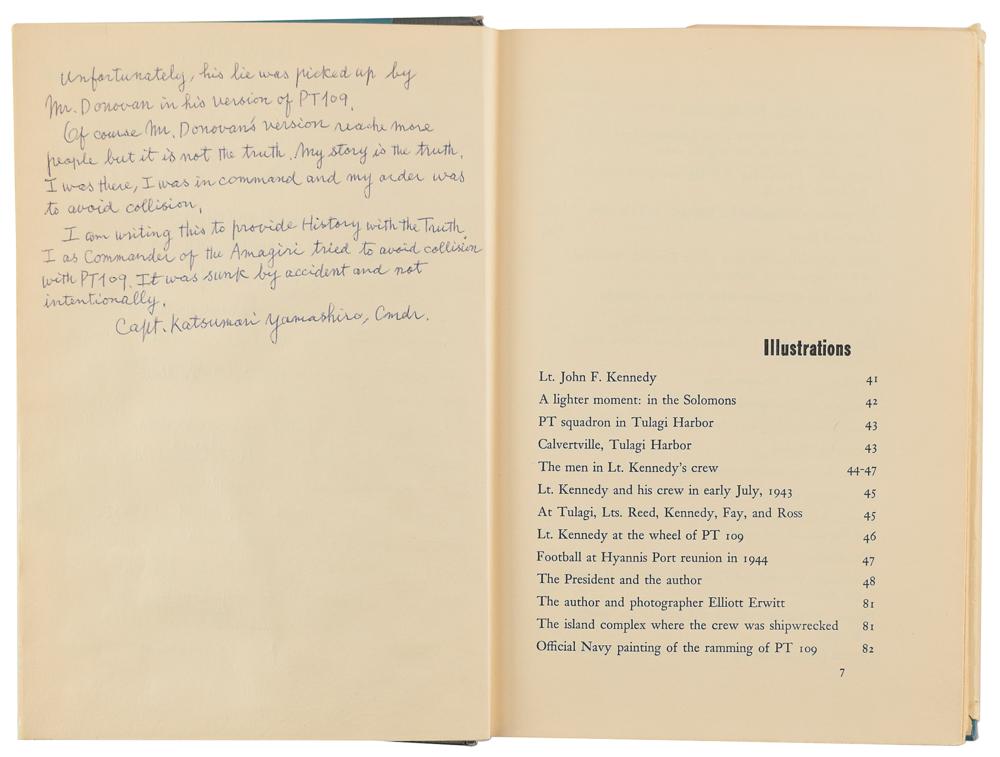 Unfortunately, his lie was picked up by
Mr. Donovan in his version of PT109.
Of course Mr. Donovan's version reache more
people but it is not the truth. My story is the truth.
I was there, I was in command and my order was
to avoid collision.
I am writing this to provide History with the Truth.
I as Commander of the Amagiri tried to avoid collision
with PT109. It was sunk by accident and not
intentionally.
Capt. Katsumori Yamashiro, Cmdr.
Illustrations
Lt. John F. Kennedy 41
A lighter moment: in the Solomons 42
PT squadron in Tulagi Harbor 43
Calvertville, Tulagi Harbor 43
The men in Lt. Kennedy's crew 44-47
Lt. Kennedy and his crew in early July, 1943 45
At Tulagi, Lts. Reed, Kennedy, Fay, and Ross 45
Lt. Kennedy at the wheel of PT 109 46
Football at Hyannis Port reunion in 1944 47
The President and the author 48
The author and photographer Elliott Erwitt 81
The island complex where the crew was shipwrecked 81
Official Navy painting of the ramming of PT 109 82
7